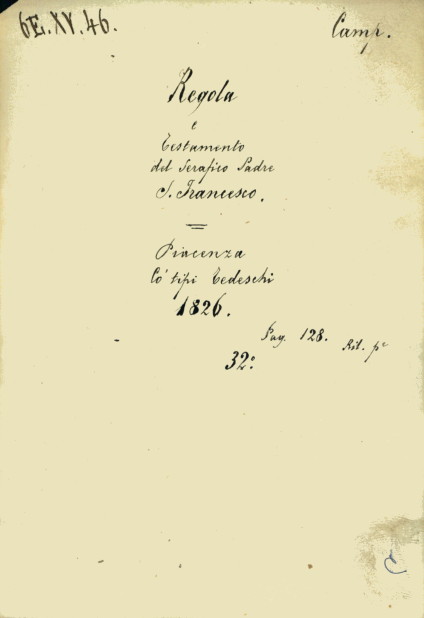 6E.XV.46.
Camp.
Regola
e
Testamento
del Serafico Padre
S. Francesco.
Piacenza
Co' tipi Tedeschi
1826.
Pag. 128.
Ril. pe
32º
C